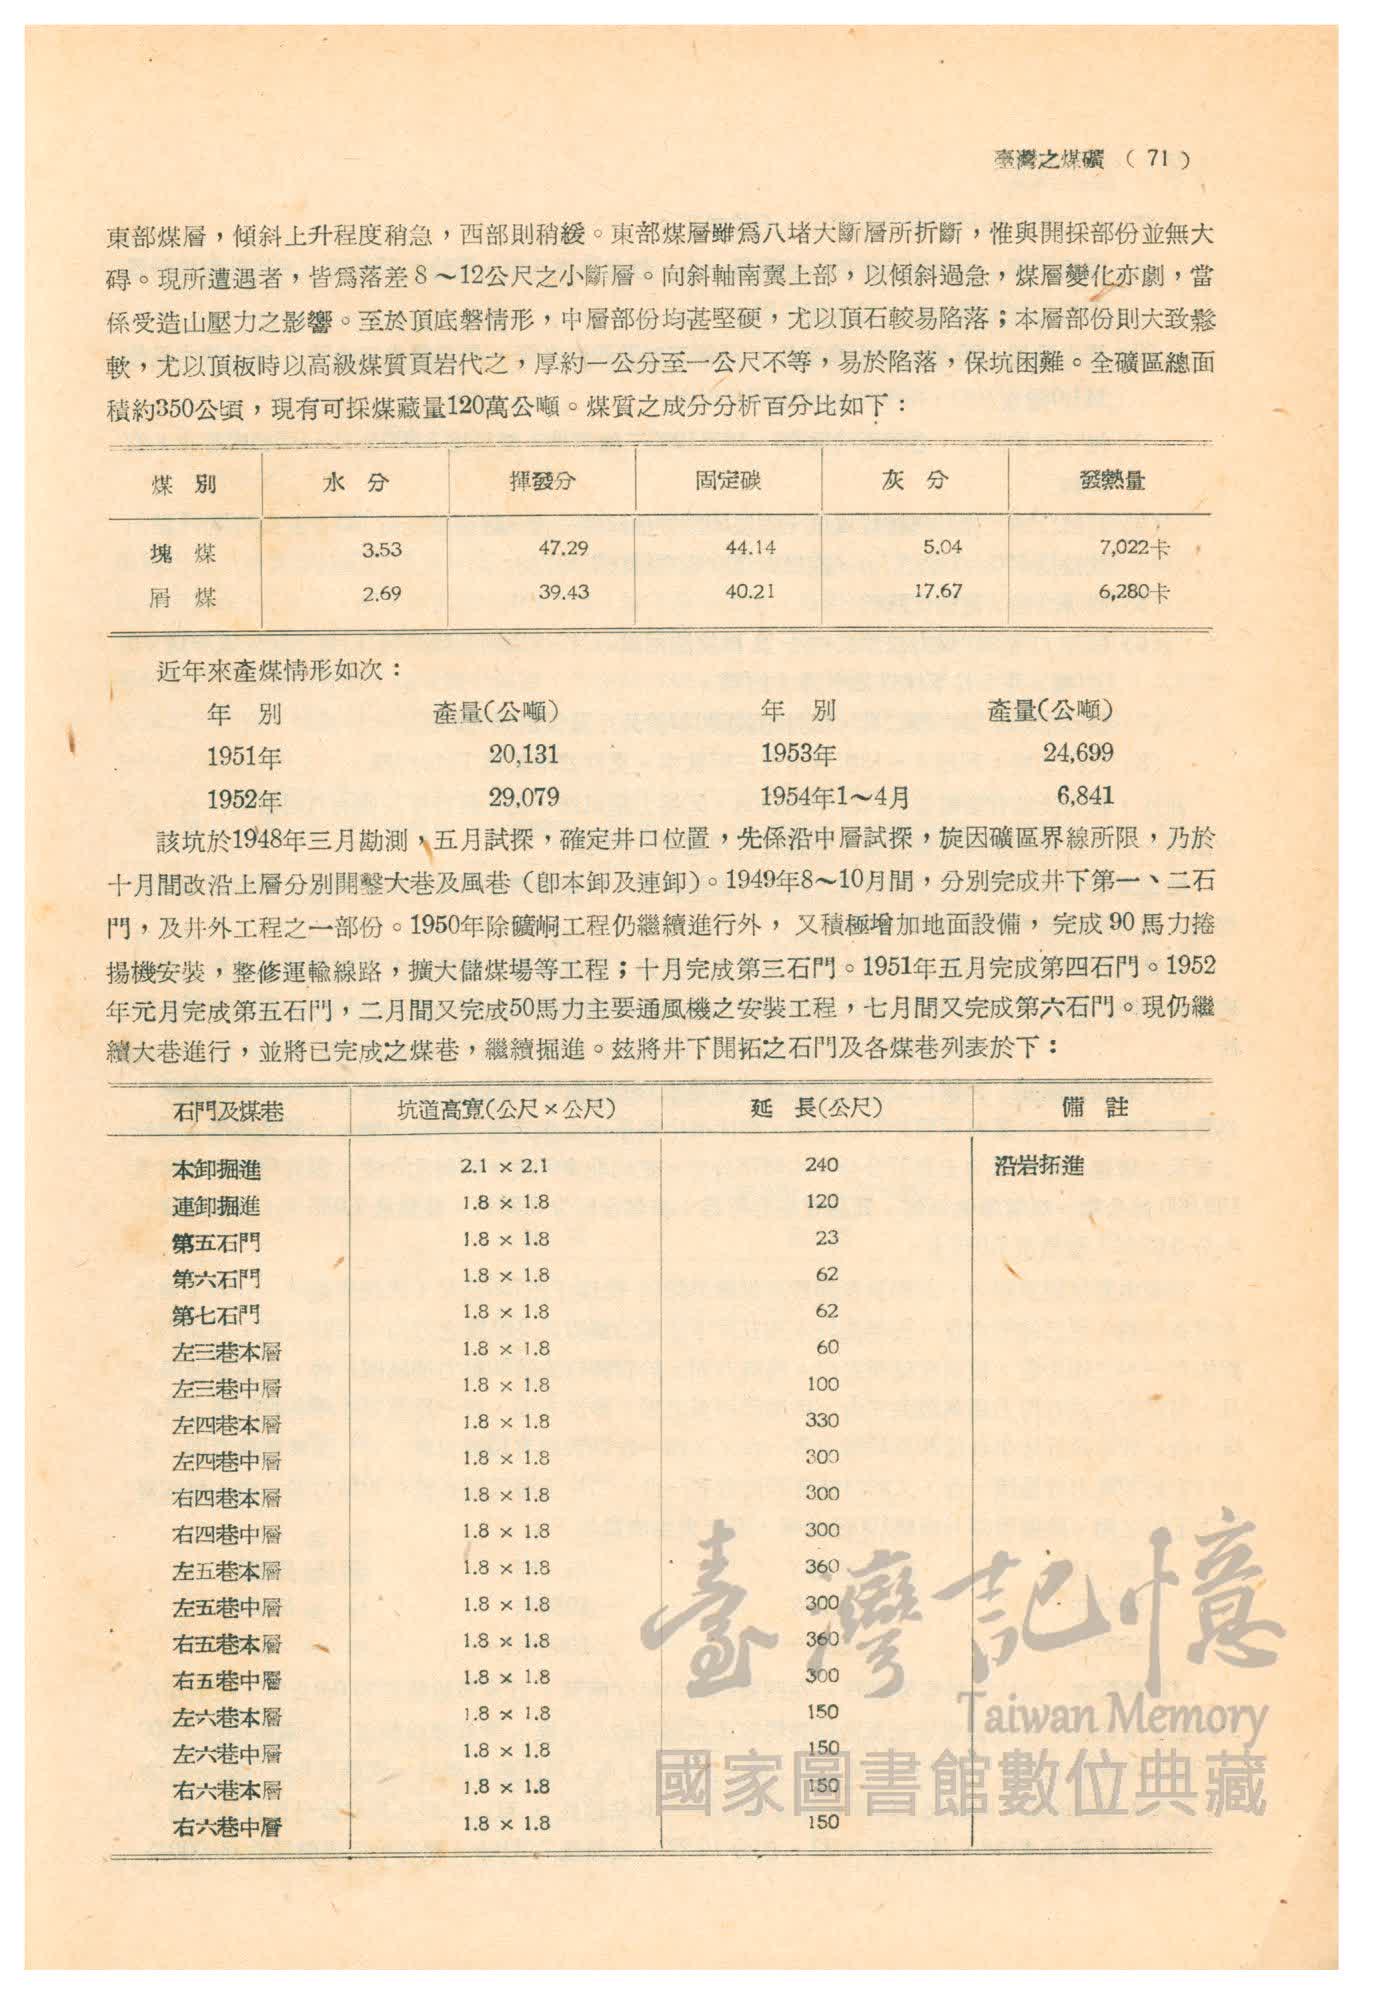 臺灣之煤礦 ( 71 )
東部煤層，傾斜上升程度稍急，西部則稍緩。東部煤層雖爲八堵大斷層所折斷，惟與開採部份並無大
碍。現所遭遇者，皆爲落差8～12公尺之小斷層。向斜軸南翼上部，以傾斜過急，煤層變化亦劇，當
係受造山壓力之影響。至於頂底磐情形，中層部份均甚堅硬，尤以頂石較易陷落；本層部份則大致鬆
軟，尤以頂板時以高級煤質頁岩代之，厚約一公分至一公尺不等，易於陷落，保坑困難。全礦區總面
積約350公頃，現有可採煤藏量120萬公噸。煤質之成分分析百分比如下：
煤別 水分 揮發分 固定碳 灰分 發熱量
塊煤 3.53 47.29 44.14 5.04 7,022卡
屑煤 2.69 39.43 40.21 17.67 6,280卡
近年來產煤情形如次：
年別 產量(公噸) 年別 產量(公噸)
1951年 20,131 1953年 24,699
1952年 29,079 1954年1～4月 6,841
該坑於1948年三月勘測，五月試探，確定井口位置，先係沿中層試探，旋因礦區界線所限，乃於
十月間改沿上層分別開鑿大巷及風巷（卽本卸及連卸）。1949年8～10月間，分別完成井下第一、二石
門，及井外工程之一部份。1950年除礦峒工程仍繼續進行外，又積極增加地面設備，完成90馬力捲
揚機安裝，整修運輸線路，擴大儲煤場等工程；十月完成第三石門。1951年五月完成第四石門。1952
年元月完成第五石門，二月間又完成50馬力主要通風機之安裝工程，七月間又完成第六石門。現仍繼
續大巷進行，並將已完成之煤巷，繼續掘進。玆將井下開拓之石門及各煤巷列表於下：
石門及煤巷 坑道高寬(公尺×公尺) 延長(公尺) 備註
本卸掘進 2.1 × 2.1 240 沿岩拓進
連卸掘進 1.8 × 1.8 120
第五石門 1.8 × 1.8 23
第六石門 1.8 × 1.8 62
第七石門 1.8 × 1.8 62
左三巷本層 1.8 × 1.8 60
左三巷中層 1.8 × 1.8 100
左四巷本層 1.8 × 1.8 330
左四巷中層 1.8 × 1.8 300
右四巷本層 1.8 × 1.8 300
右四巷中層 1.8 × 1.8 300
左五巷本層 1.8 × 1.8 360
左五巷中層 1.8 × 1.8 300
右五巷本層 1.8 × 1.8 360
右五巷中層 1.8 × 1.8 300
左六巷本層 1.8 × 1.8 150
左六巷中層 1.8 × 1.8 150
右六巷本層 1.8 × 1.8 150
右六巷中層 1.8 × 1.8 150
臺灣記憶
Taiwan Memory
國家圖書館數位典藏